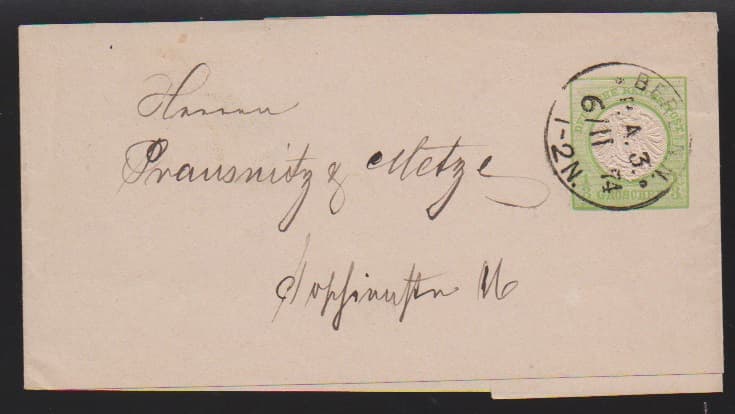 Herren
Prausnitz & Metze
Sophienstr 16
BERLIN
P. A. 3.
6/11 74
1-2N.
DEUTSCHE REICHS POST
GROSCHEN